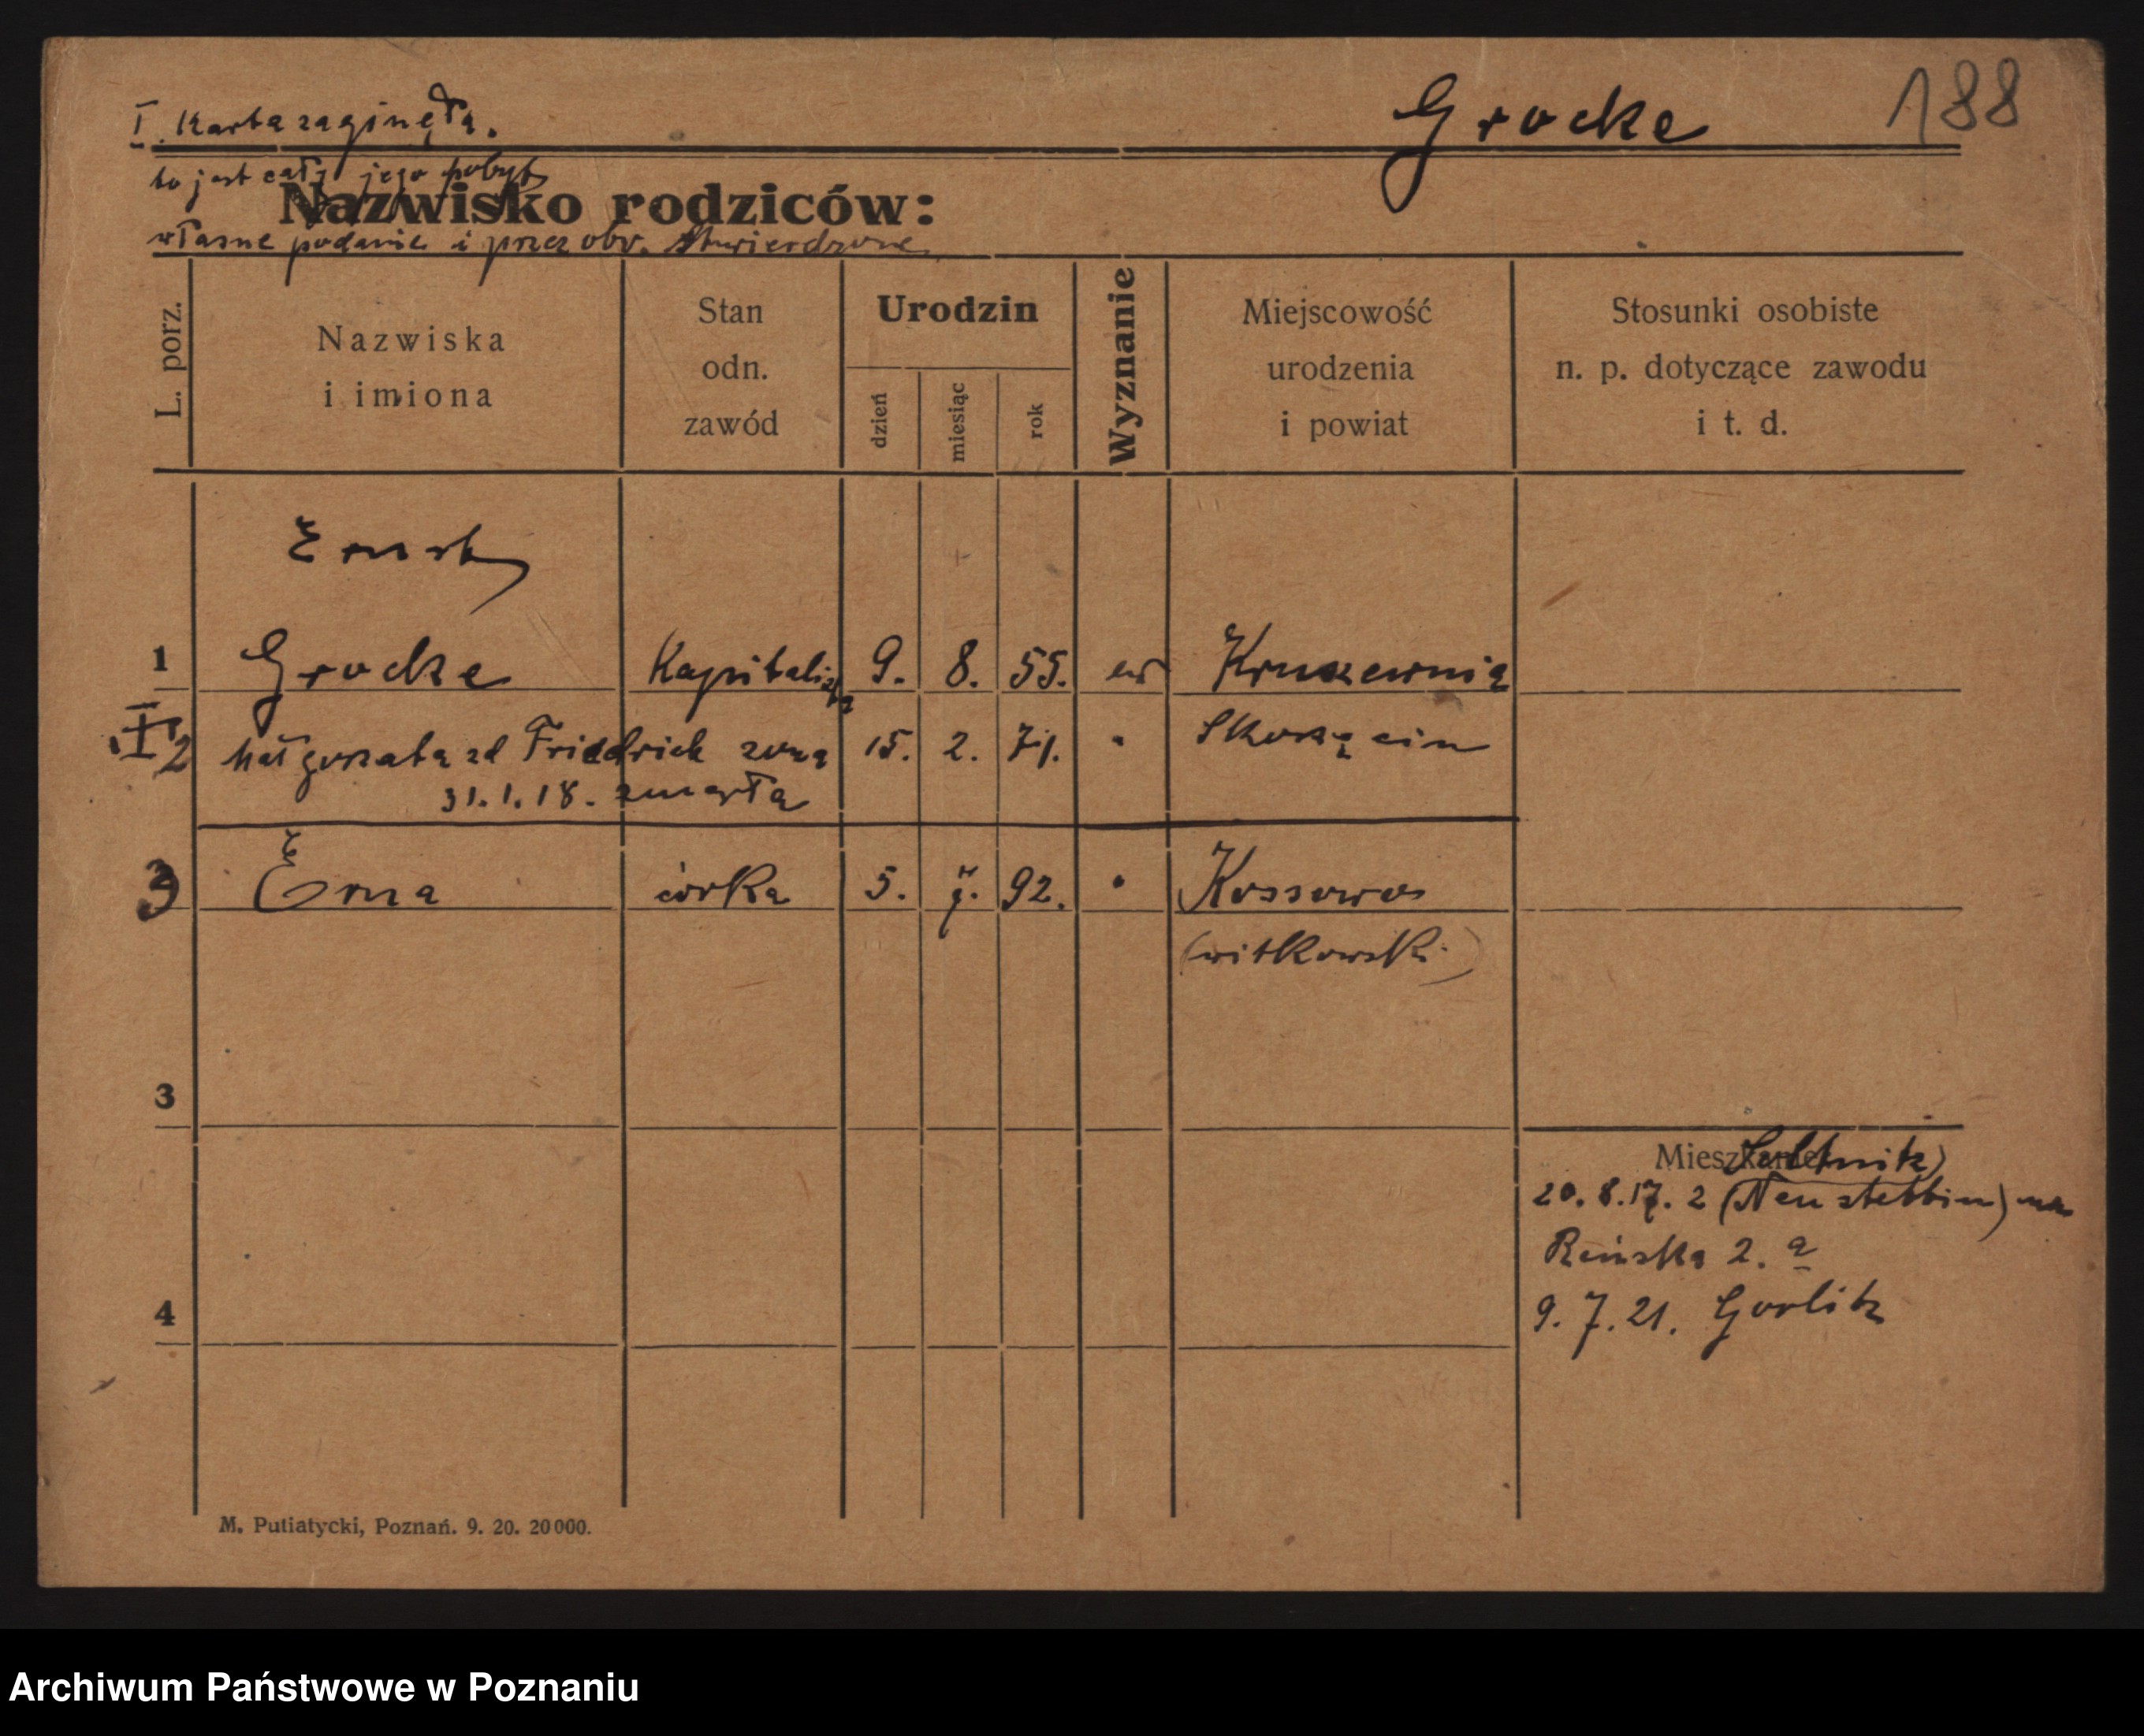 I. Karta zaginęła.
Grocke
188
to jest cały jego pobyt
Nazwisko rodziców:
własne podanie i przez obv. stwierdzone
L. porz.
Nazwiska
i imiona
Stan
odn.
zawód
Urodzin
dzień
miesiąc
rok
Wyznanie
Miejscowość
urodzenia
i powiat
Stosunki osobiste
n. p. dotyczące zawodu
i t. d.
Ernst
1 Grocke Kapitalista 9. 8. 55. ew
2 Małgorzata zd Friedrich żona 15. 2. 71. " Skorzęcin
31.1.18. zmarła
3 Erna córka 5. 7. 92. " Kossowo
(witkowski)
3
Mieszkanie
20.8.17. z (Neustettin)
Reińska 2. a
4
9. 7. 21. Gorlitz
M. Putiatycki, Poznań. 9. 20. 20000.
Archiwum Państwowe w Poznaniu